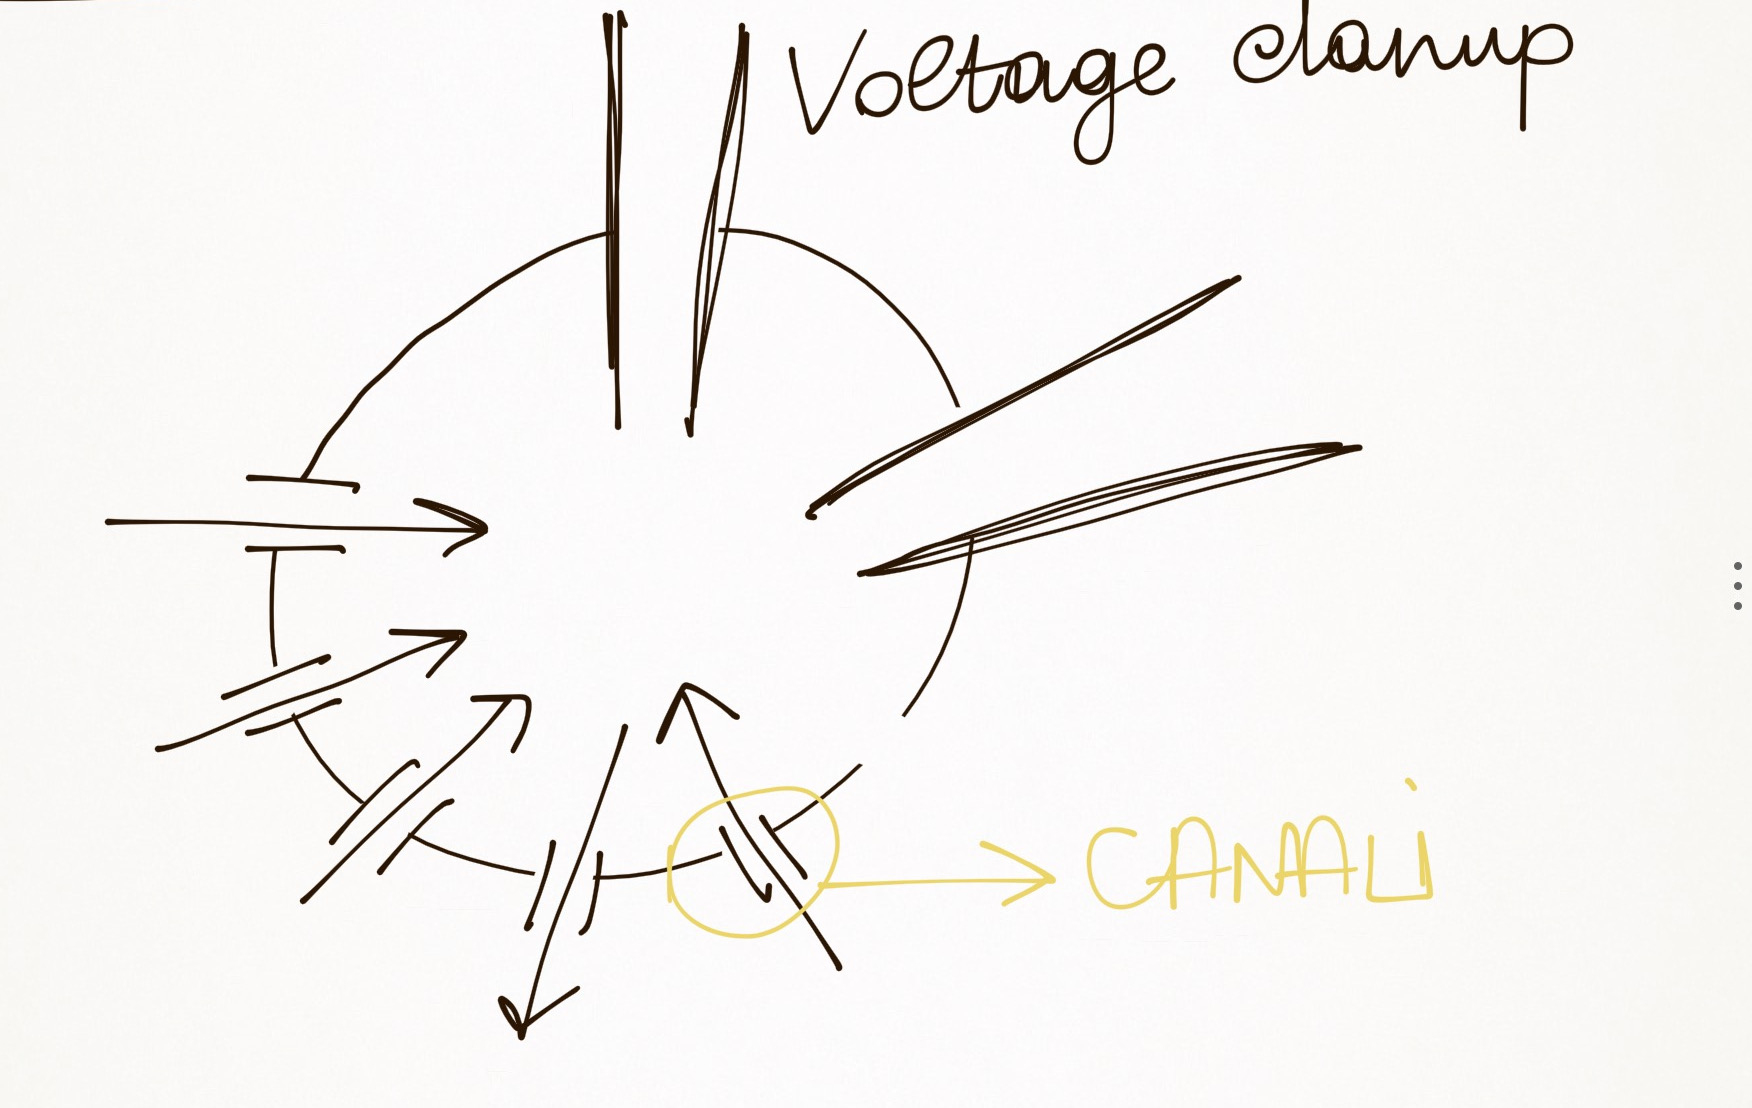 Voltage clamp
CANALI